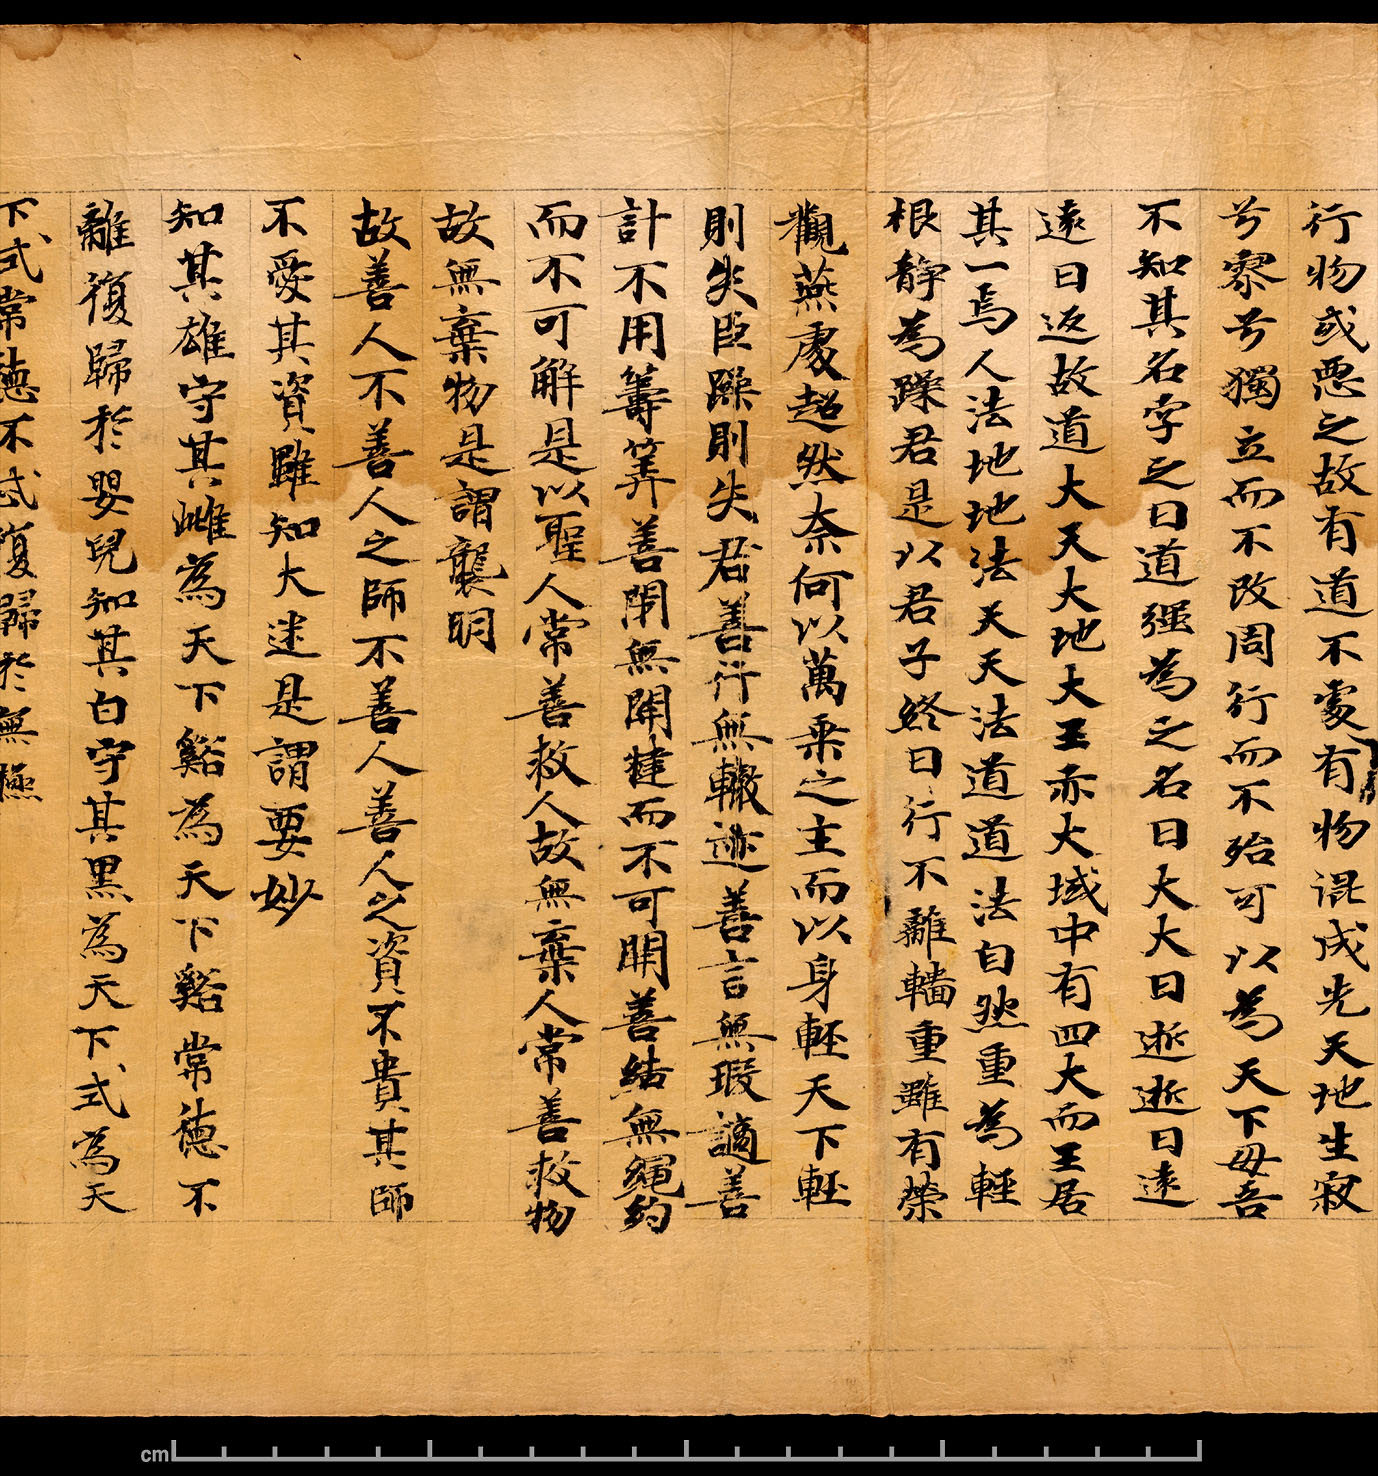 行物或惡之故有道不處有物混成先天地生寂
兮寥兮獨立而不改周行而不殆可以為天下母吾
不知其名字之曰道强為之名曰大大曰逝逝曰遠
遠曰返故道大天大地大王亦大域中有四大而王居
其一焉人法地地法天天法道道法自然重為輕
根静為躁君是以君子終日行不離輜重雖有榮
觀燕處超然奈何以萬乗之主而以身輕天下輕
則失臣躁則失君善行無轍迹善言無瑕謫善
計不用籌筭善閇無関楗而不可開善結無繩約
而不可解是以聖人常善救人故無棄人常善救物
故無棄物是謂襲明
故善人不善人之師不善人善人之資不貴其師
不愛其資雖知大迷是謂要妙
知其雄守其雌為天下谿為天下谿常德不
離復歸於嬰兒知其白守其黑為天下式為天
下式常德不忒復歸於無極
cm